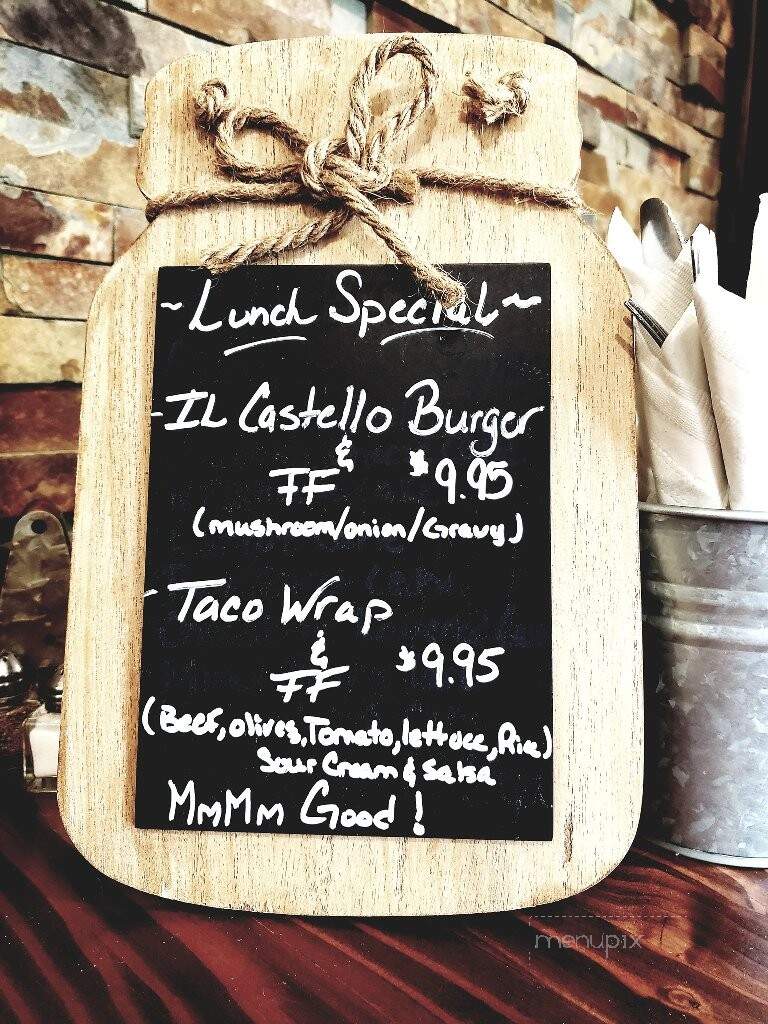 ~Lunch Special~
-IL Castello Burger
&
FF $9.95
(mushroom/onion/Gravy)
- Taco Wrap
&
FF $9.95
(Beef, olives, Tomato, lettuce, Rice)
Sour Cream & Salsa
MmMm Good!
menupix